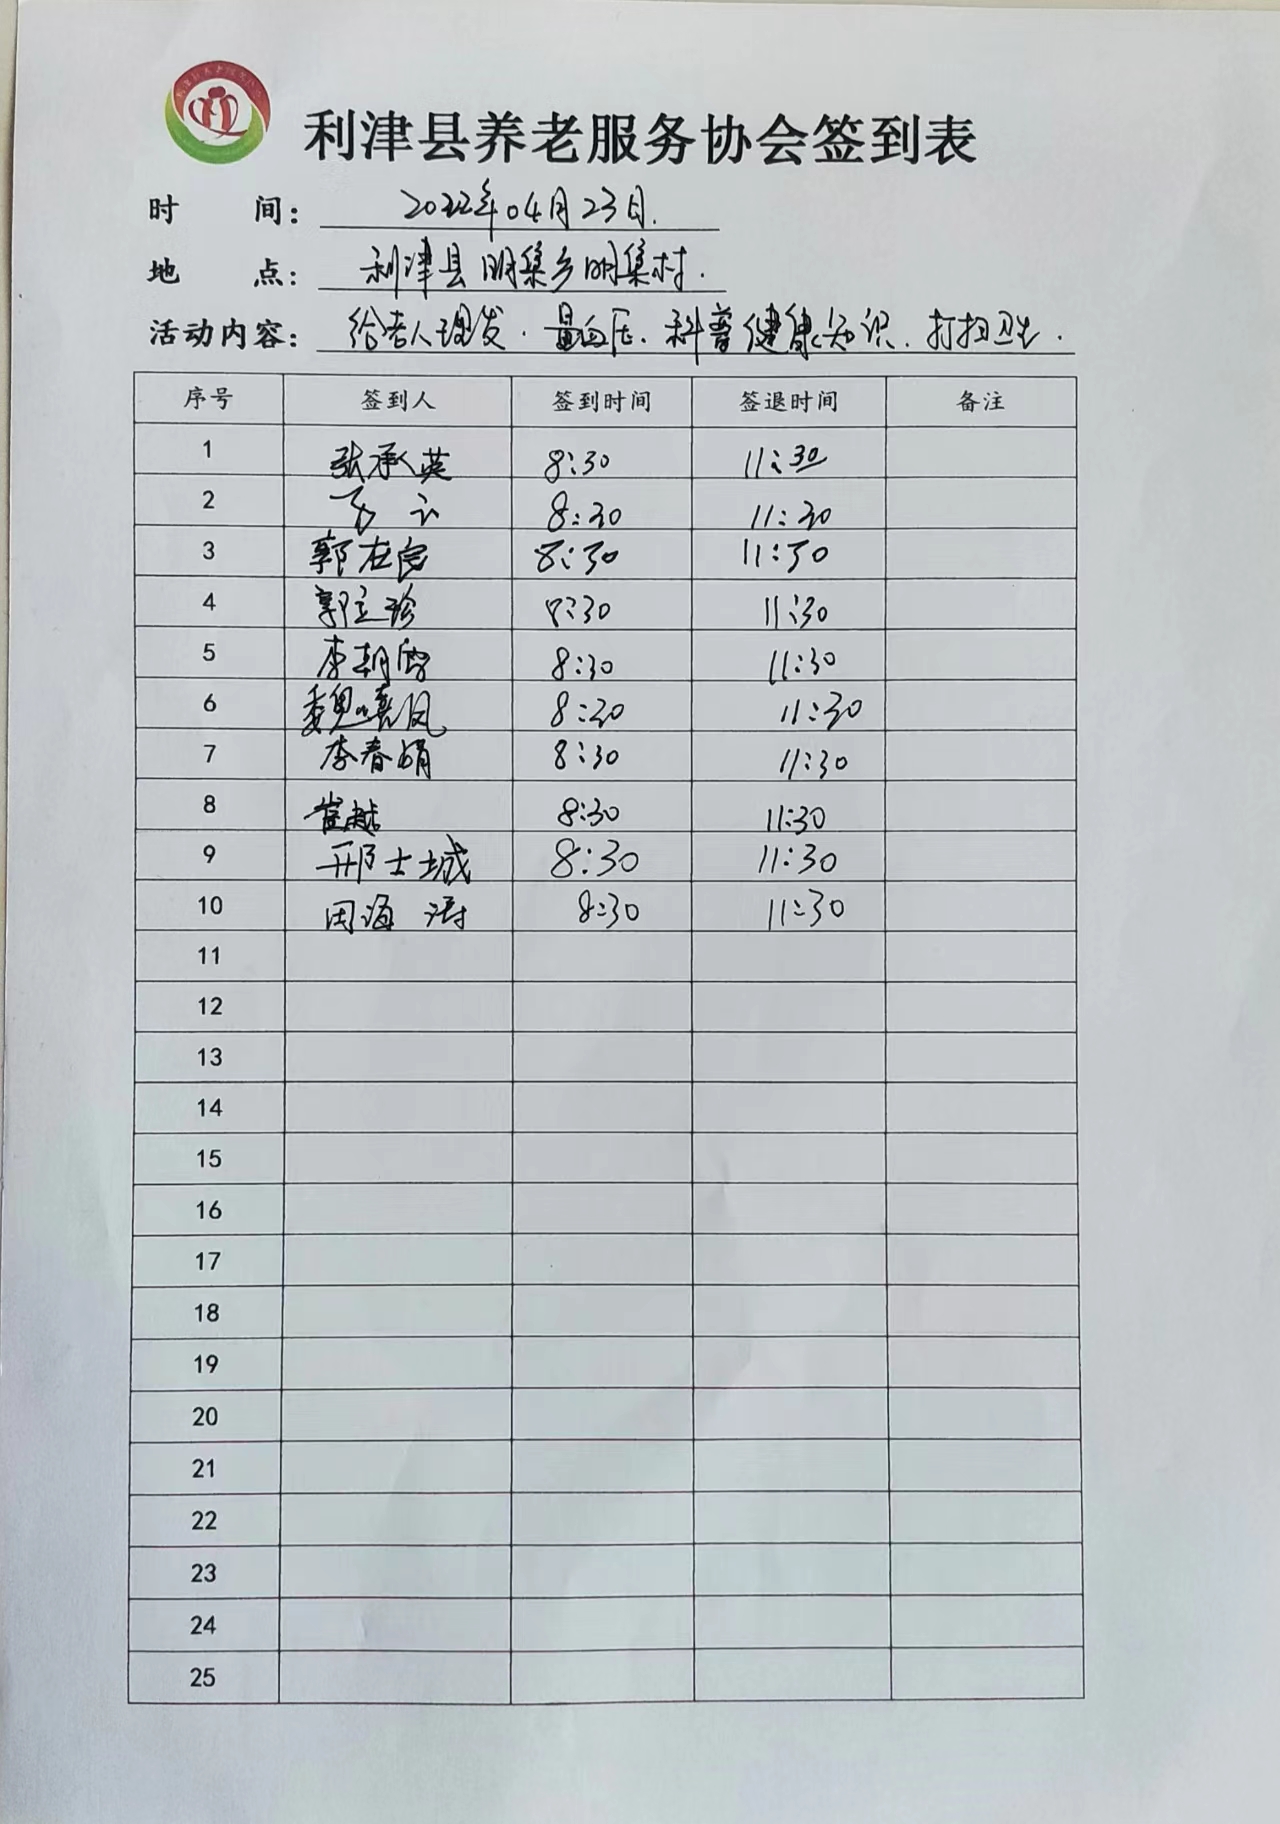 利津县养老服务协会签到表
时 间: 2022年04月23日.
地 点: 利津县明集乡明集村.
活动内容: 给老人理发.量血压.科普健康知识.打扫卫生.
序号 签到人 签到时间 签退时间 备注
1 张承英 8:30 11:30
2 8:30 11:30
3 郭在 8:30 11:30
4 郭立珍 8:30 11:30
5 李朝 8:30 11:30
6 魏凤 8:30 11:30
7 李春娟 8:30 11:30
8 崔越 8:30 11:30
9 邢士城 8:30 11:30
10 周海涛 8:30 11:30
11
12
13
14
15
16
17
18
19
20
21
22
23
24
25